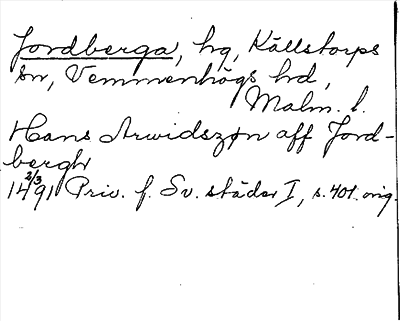 Jordberga, hg, Källstorps
sn, Vemmenhögs hd,
Malm. l.
Hans Arwidszøn aff Jord-
bergh
14 2/3 91 Priv. f. Sv. städer I, s. 401. orig.